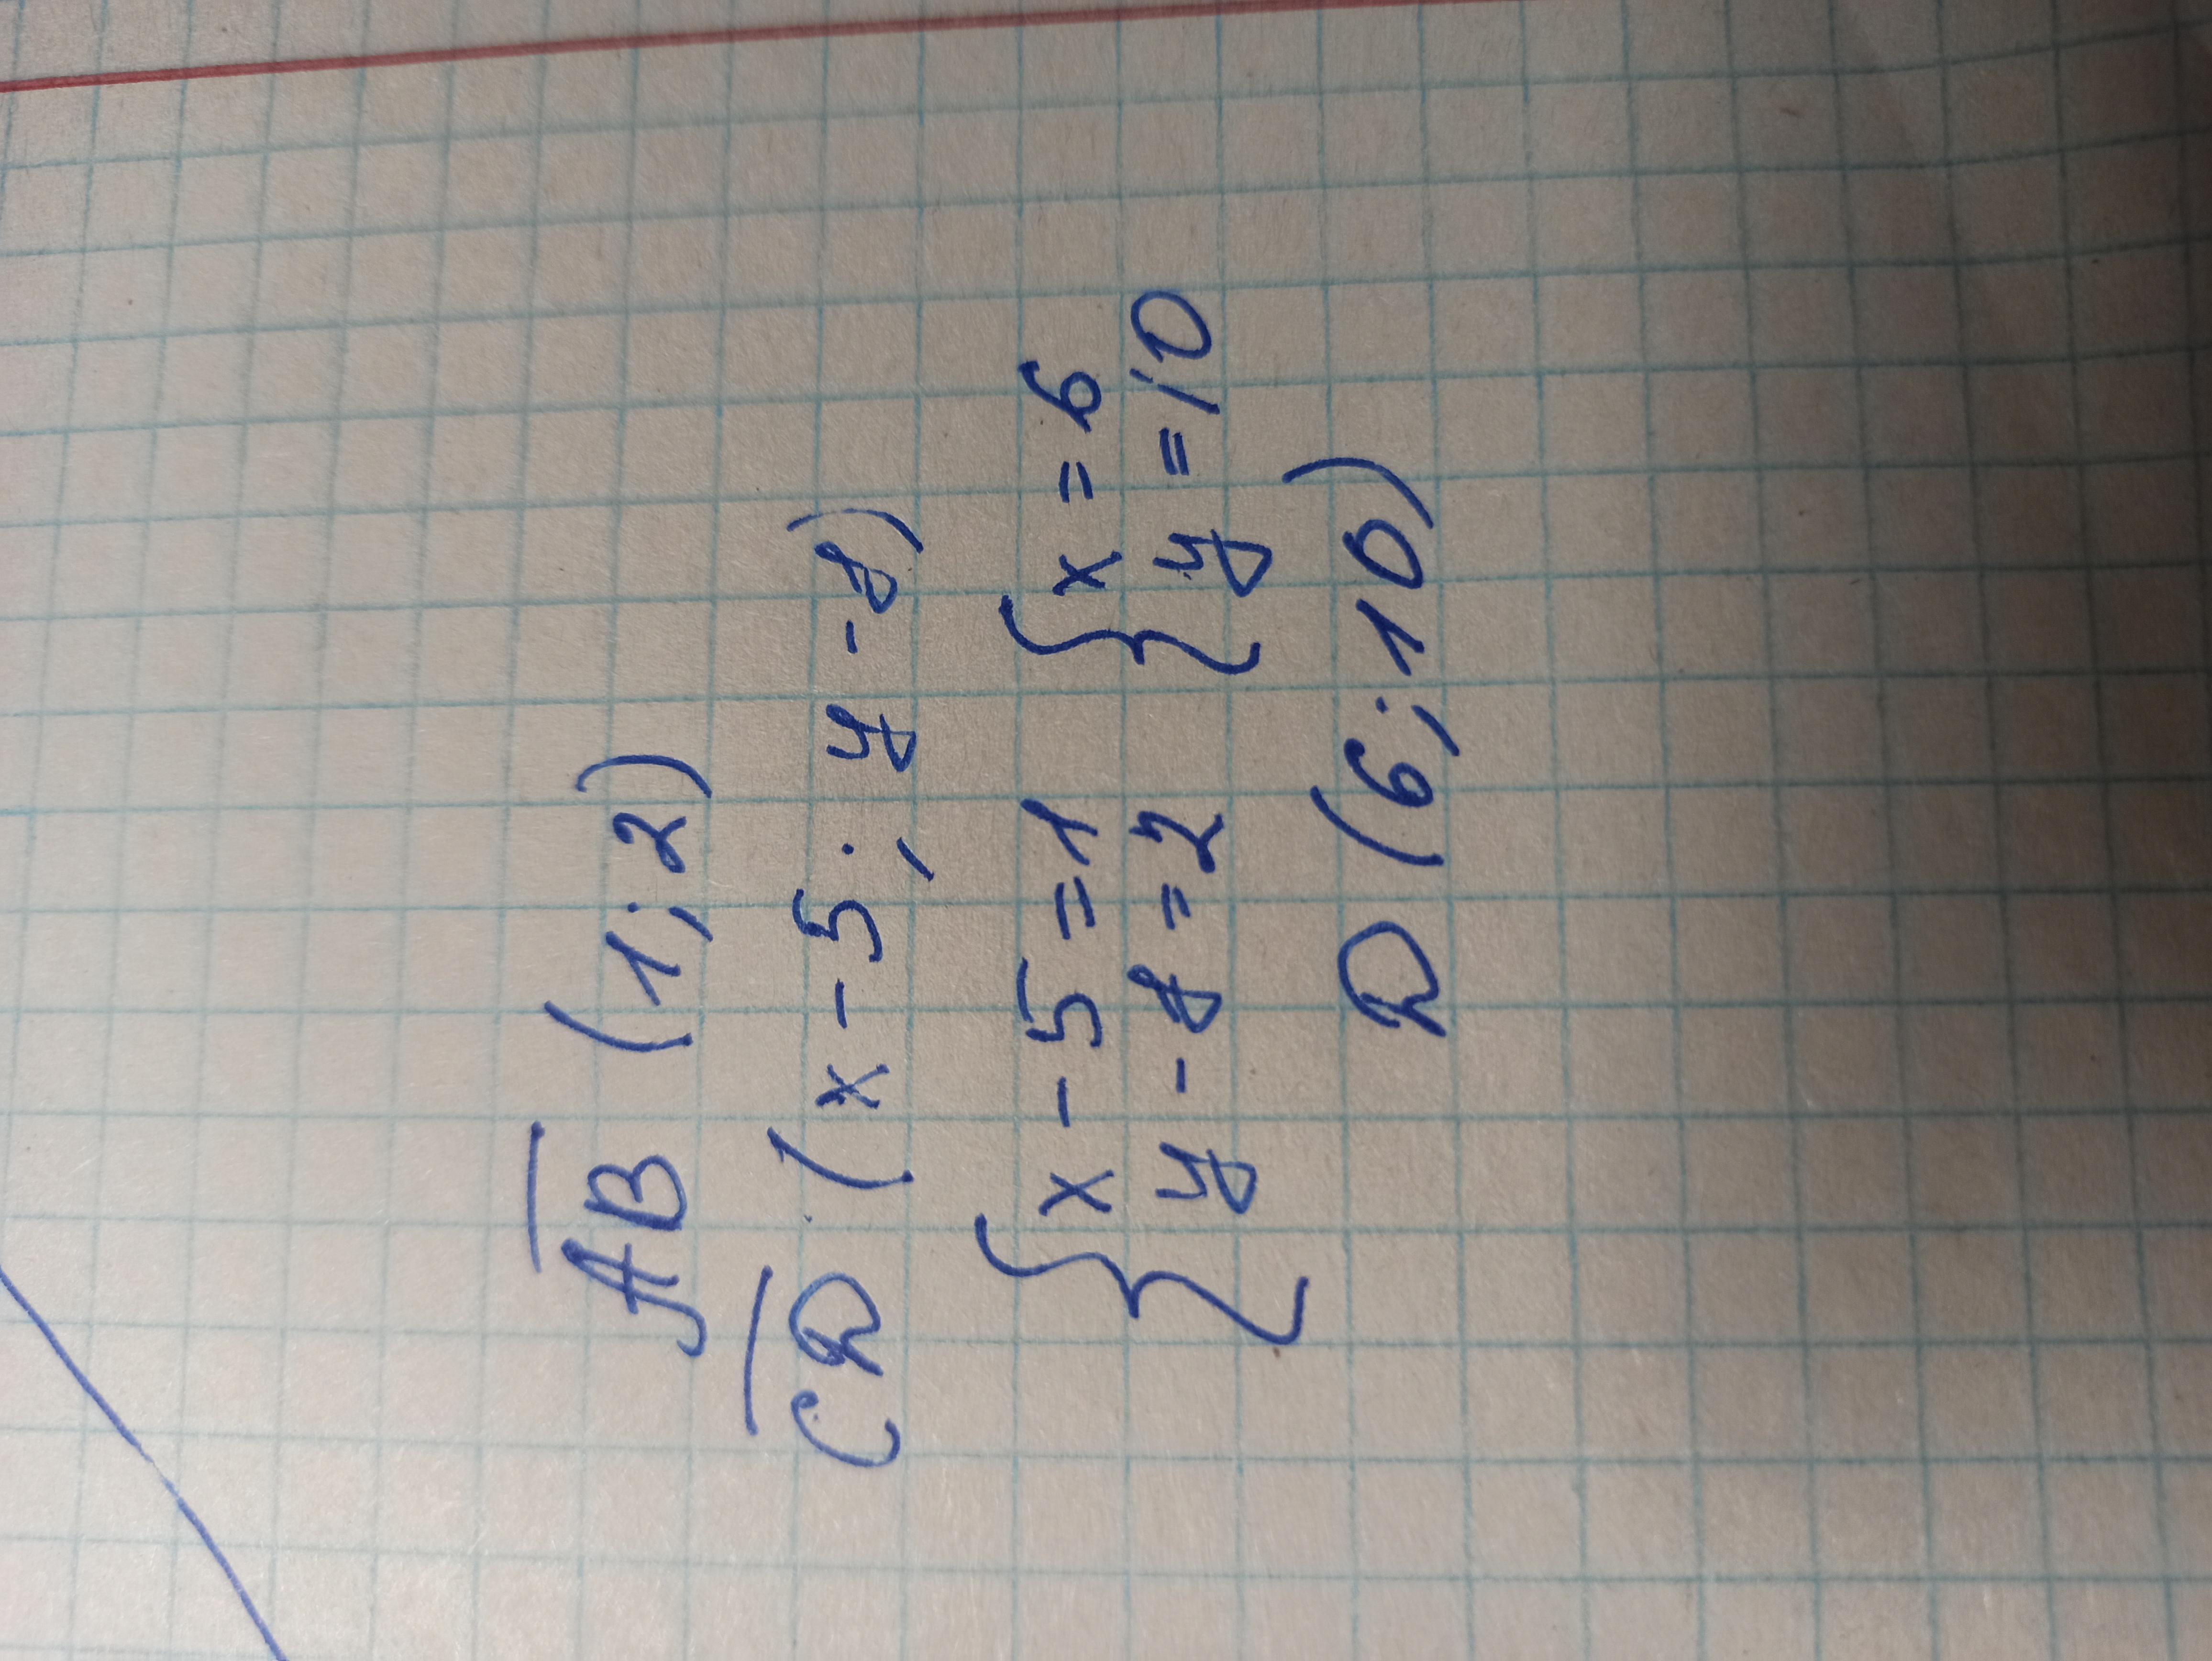 A̅B̅ (1; 2)
C̅D̅ (x - 5; y - 8)
{ x - 5 = 1 { x = 6
y - 8 = 2 y = 10
D (6; 10)